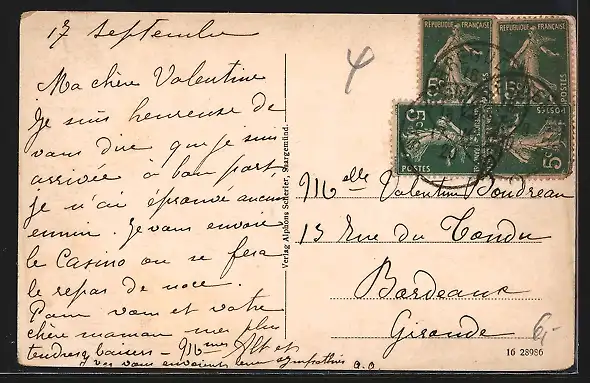 17 Septembre
Ma chère Valentine
Je suis heureuse de
vous dire que je suis
arrivée à bon port
je n'ai éprouvé aucun
ennui. Je vous envoie
le Casino ou se fera
le repas de noce.
Pour vous et votre
chère maman mes plus
tendres baisers - Mmes Alt et
vous envoient leur sympathies
Verlag Alphons Scherier, Saargemünd.
RÉPUBLIQUE FRANÇAISE
RÉPUBLIQUE FRANÇAISE
5c
POSTES
POSTES
5c
Melle Valentine Boudreau
13 Rue du Tondu
Bordeaux
Gironde
6,-
16 28986